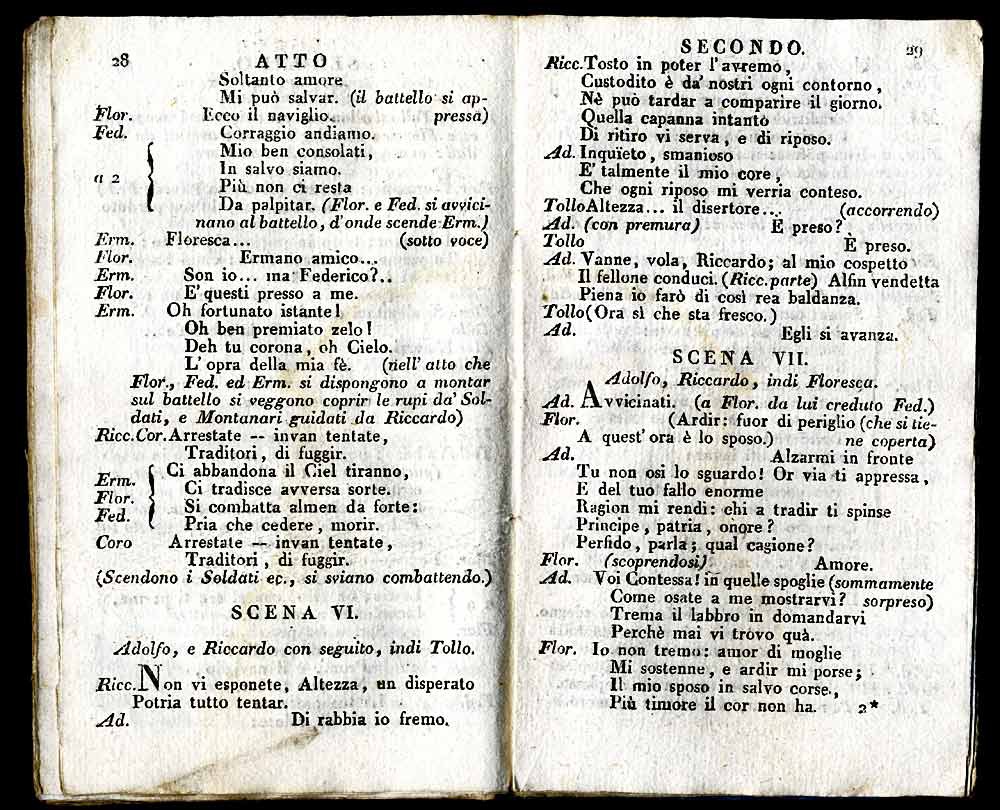 28 ATTO
Soltanto amore
Mi può salvar. (il battello si ap-
Flor. Ecco il naviglio. pressa)
Fed. Corraggio andiamo.
Mio ben consolati,
In salvo siamo.
a 2 Più non ci resta
Da palpitar. (Flor. e Fed. si avvici-
nano al battello, d'onde scende Erm.)
Erm. Floresca... (sotto voce)
Flor. Ermano amico...
Erm. Son io... ma Federico?..
Flor. E' questi presso a me.
Erm. Oh fortunato istante!
Oh ben premiato zelo!
Deh tu corona, oh Cielo.
L' opra della mia fè. (nell' atto che
Flor., Fed. ed Erm. si dispongono a montar
sul battello si veggono coprir le rupi da' Sol-
dati, e Montanari guidati da Riccardo)
Ricc.Cor. Arrestate -- invan tentate,
Traditori, di fuggir.
Erm. Ci abbandona il Ciel tiranno,
Flor. Ci tradisce avversa sorte.
Fed. Si combatta almen da forte:
Pria che cedere, morir.
Coro Arrestate -- invan tentate,
Traditori, di fuggir.
(Scendono i Soldati ec., si sviano combattendo.)
SCENA VI.
Adolfo, e Riccardo con seguito, indi Tollo.
Ricc. Non vi esponete, Altezza, un disperato
Potria tutto tentar.
Ad. Di rabbia io fremo.
SECONDO. 29
Ricc. Tosto in poter l'avremo,
Custodito è da' nostri ogni contorno,
Nè può tardar a comparire il giorno.
Quella capanna intanto
Di ritiro vi serva, e di riposo.
Ad. Inquïeto, smanioso
E' talmente il mio core,
Che ogni riposo mi verria conteso.
Tollo Altezza... il disertore... (accorrendo)
Ad. (con premura) È preso?
Tollo È preso.
Ad. Vanne, vola, Riccardo; al mio cospetto
Il fellone conduci. (Ricc. parte) Alfin vendetta
Piena io farò di così rea baldanza.
Tollo (Ora sì che sta fresco.)
Ad. Egli si avanza.
SCENA VII.
Adolfo, Riccardo, indi Floresca.
Ad. Avvicinati. (a Flor. da lui creduto Fed.)
Flor. (Ardir: fuor di periglio (che si tie-
A quest' ora è lo sposo.) ne coperta)
Ad. Alzarmi in fronte
Tu non osi lo sguardo! Or via ti appressa,
E del tuo fallo enorme
Ragion mi rendi: chi a tradir ti spinse
Principe, patria, onore?
Perfido, parla; qual cagione?
Flor. (scoprendosi) Amore.
Ad. Voi Contessa! in quelle spoglie (sommamente
Come osate a me mostrarvi? sorpreso)
Trema il labbro in domandarvi
Perchè mai vi trovo quà.
Flor. Io non tremo: amor di moglie
Mi sostenne, e ardir mi porse;
Il mio sposo in salvo corse,
Più timore il cor non ha. 2*